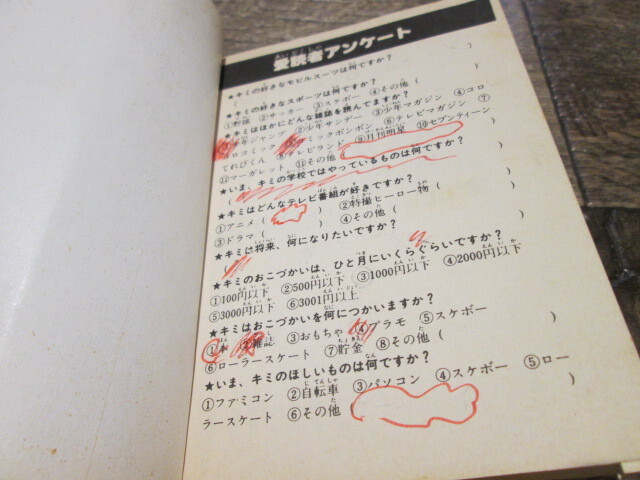 愛読者アンケート
★キミの好きなモビルスーツは何ですか?
(　　　)
★キミの好きなスポーツは何ですか?
①野球 ②サッカー ③スケボー ④その他(　　　)
★キミはほかにどんな雑誌を読んでますか?
年ジャンプ ②少年サンデー ③少年マガジン ④コロ
ロコミック コミックボンボン ⑥テレビマガジン ⑦
てれびくん テレビランド ⑨月刊明星 ⑩セブンティーン
⑪マーガレット ⑫その他(　　　)
★いま、キミの学校ではやっているものは何ですか?
(　　　)
★キミはどんなテレビ番組が好きですか?
①アニメ(　　　) ②特撮ヒーロー物(　　　)
③ドラマ(　　　) ④その他(　　　)
★キミは将来、何になりたいですか?
(　　　)
★キミのおこづかいは、ひと月にいくらぐらいですか?
①100円以下 ②500円以下 ③1000円以下 ④2000円以下
⑤3000円以下 ⑥3001円以上
★キミはおこづかいを何につかいますか?
①本 ②雑誌 ③おもちゃ ④プラモ ⑤スケボー
⑥ローラースケート ⑦貯金 ⑧その他(　　　)
★いま、キミのほしいものは何ですか?
①ファミコン ②自転車 ③パソコン ④スケボー ⑤ロー
ラースケート ⑥その他(　　　)